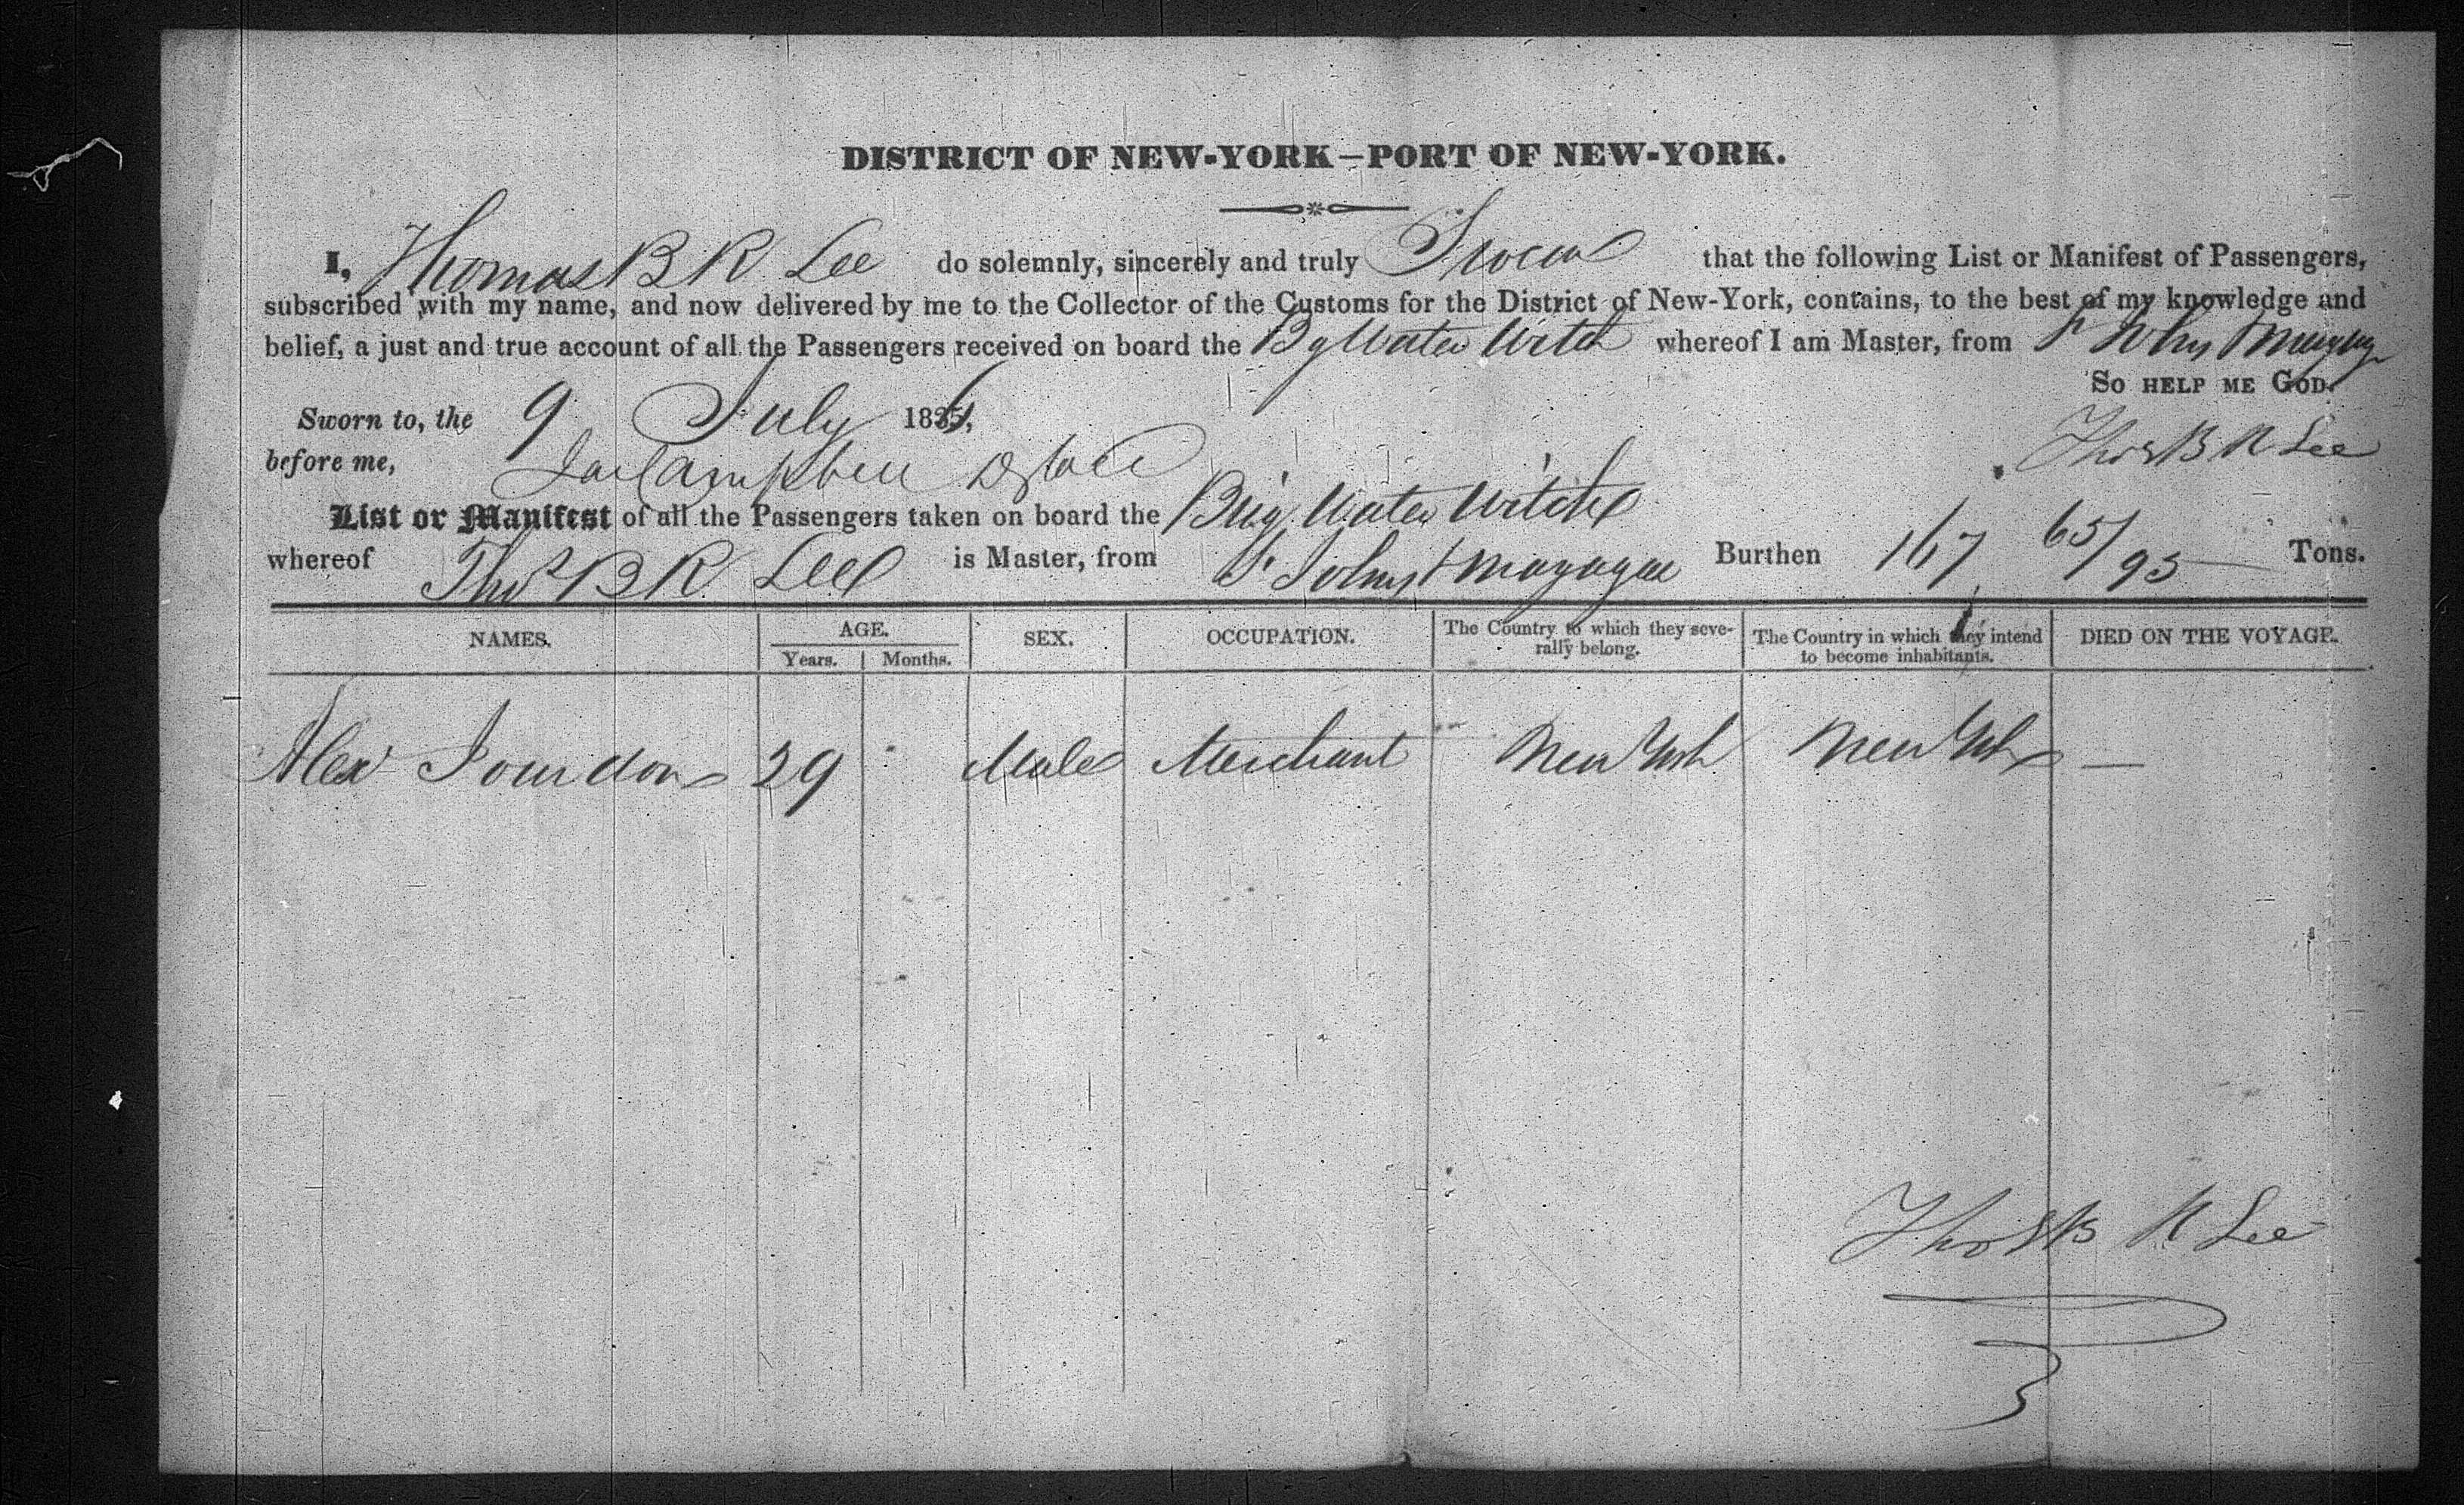 DISTRICT OF NEW-YORK—PORT OF NEW-YORK.
I, Thomas B R Lee do solemnly, sincerely and truly Swear that the following List or Manifest of Passengers,
subscribed with my name, and now delivered by me to the Collector of the Customs for the District of New-York, contains, to the best of my knowledge and
belief, a just and true account of all the Passengers received on board the Bg Water Witch whereof I am Master, from St Johns
SO HELP ME GOD.
Sworn to, the 9 July 183
Thos B R Lee
before me, Campbell
List or Manifest of all the Passengers taken on board the Brig Water Witch
whereof Thos B R Lee is Master, from St Johns & Mayagues Burthen 167 65/95 Tons.
NAMES. AGE. SEX. OCCUPATION. The Country to which they seve- The Country in which they intend DIED ON THE VOYAGE.
Years. Months. rally belong. to become inhabitants.
Alex Jourdon 29 Male Merchant New York New York —
Thos B R Lee